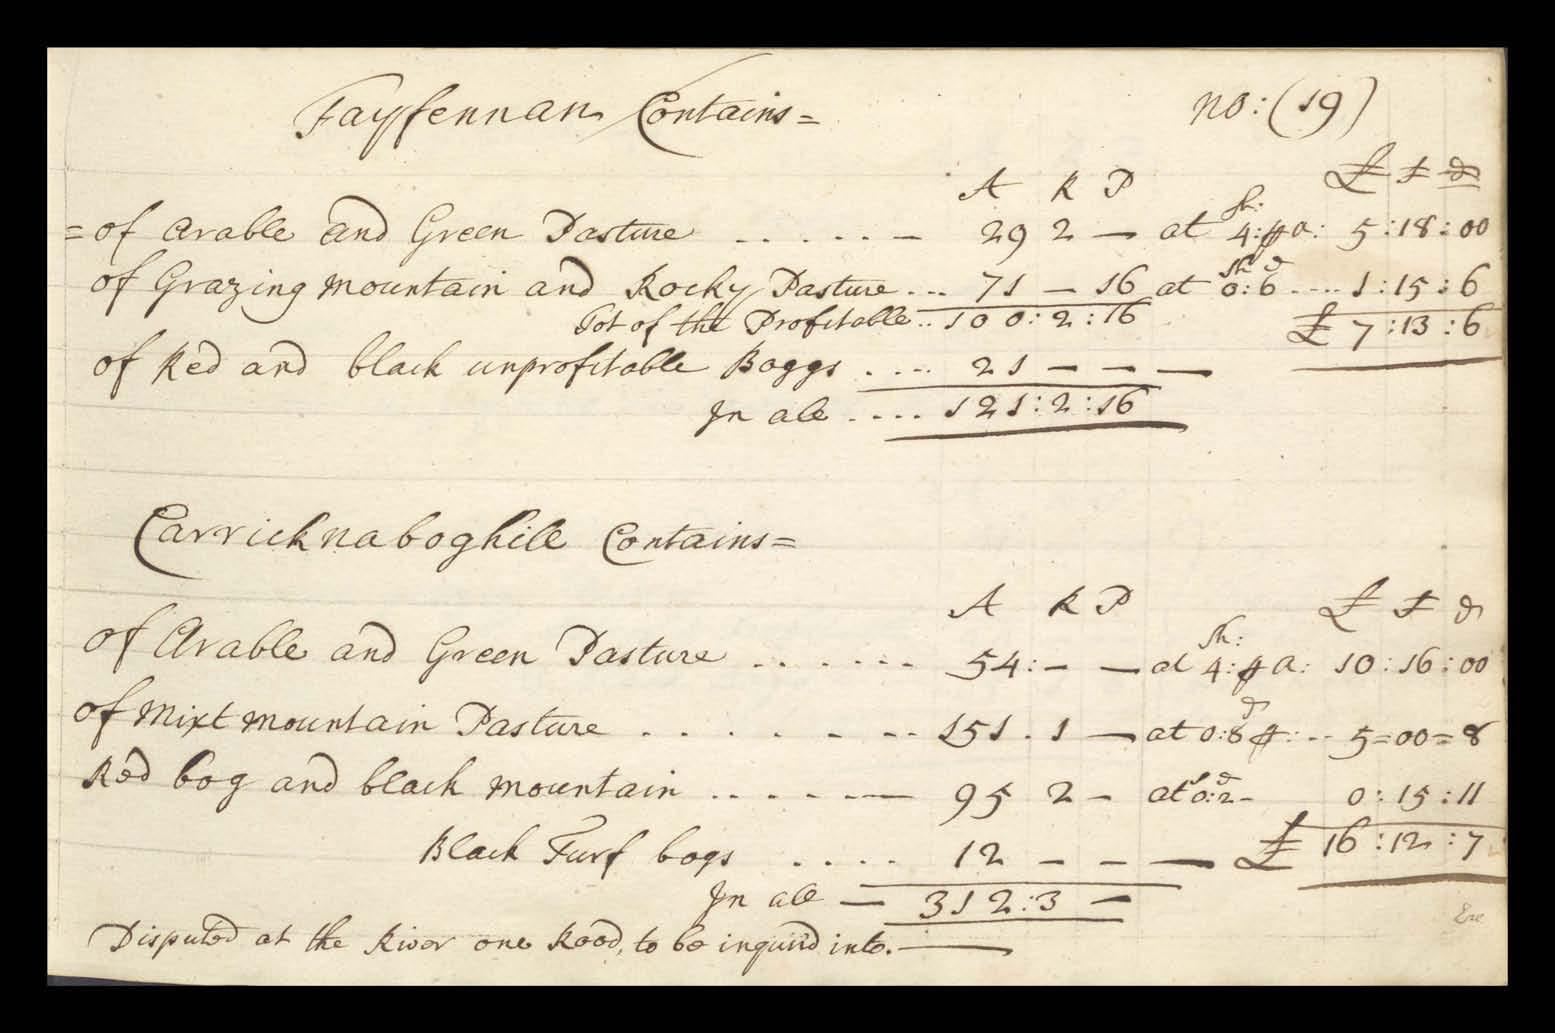 Fayfennan Contains=
no: (19)
A R P £ s d
= of Arable and Green Pasture ...... — 29 2 — at 4:sh: p a: 5:18:00
of Grazing mountain and Rocky Pasture ... 71 — 16 at 0:6 sh d .... 1:15:6
Tot of the Profitable .. 100:2:16 £ 7:13:6
of Red and black unprofitable Boggs .... 21 — — —
In all .... 121:2:16
Carricknaboghill Contains=
A R P £ s d
of Arable and Green Pasture ....... 54:— — at 4:sh: p a: 10:16:00
of Mixt mountain Pasture ........ 151.1 — at 0:8 d p:.. 5=00=8
Red bog and black mountain ...... — 95 2 — at 0:2 s d - 0:15:11
Black Turf bogs .... 12 — — — £ 16:12:7
In all — 312:3 —
Disputed at the River one Rood, to be inquird into. —